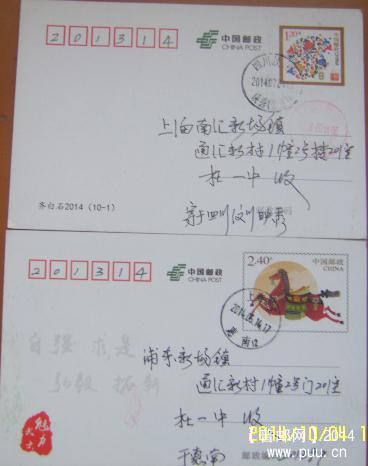 201314
中国邮政
CHINA POST
1.20元
四川汶川
2014.07.2
上海南汇新场镇
通汇新村1幢2号楼201室
杜一中 收
齐白石2014（10-1）
寄于四川汶川映秀
201314
中国邮政
CHINA POST
2.40元
中国邮政
CHINA
上海
2014.06.14.17
自强 求是
弘毅 拓新
浦东新场镇
通汇新村1幢2号门201室
杜一中 收
魅力
www.puu.cn